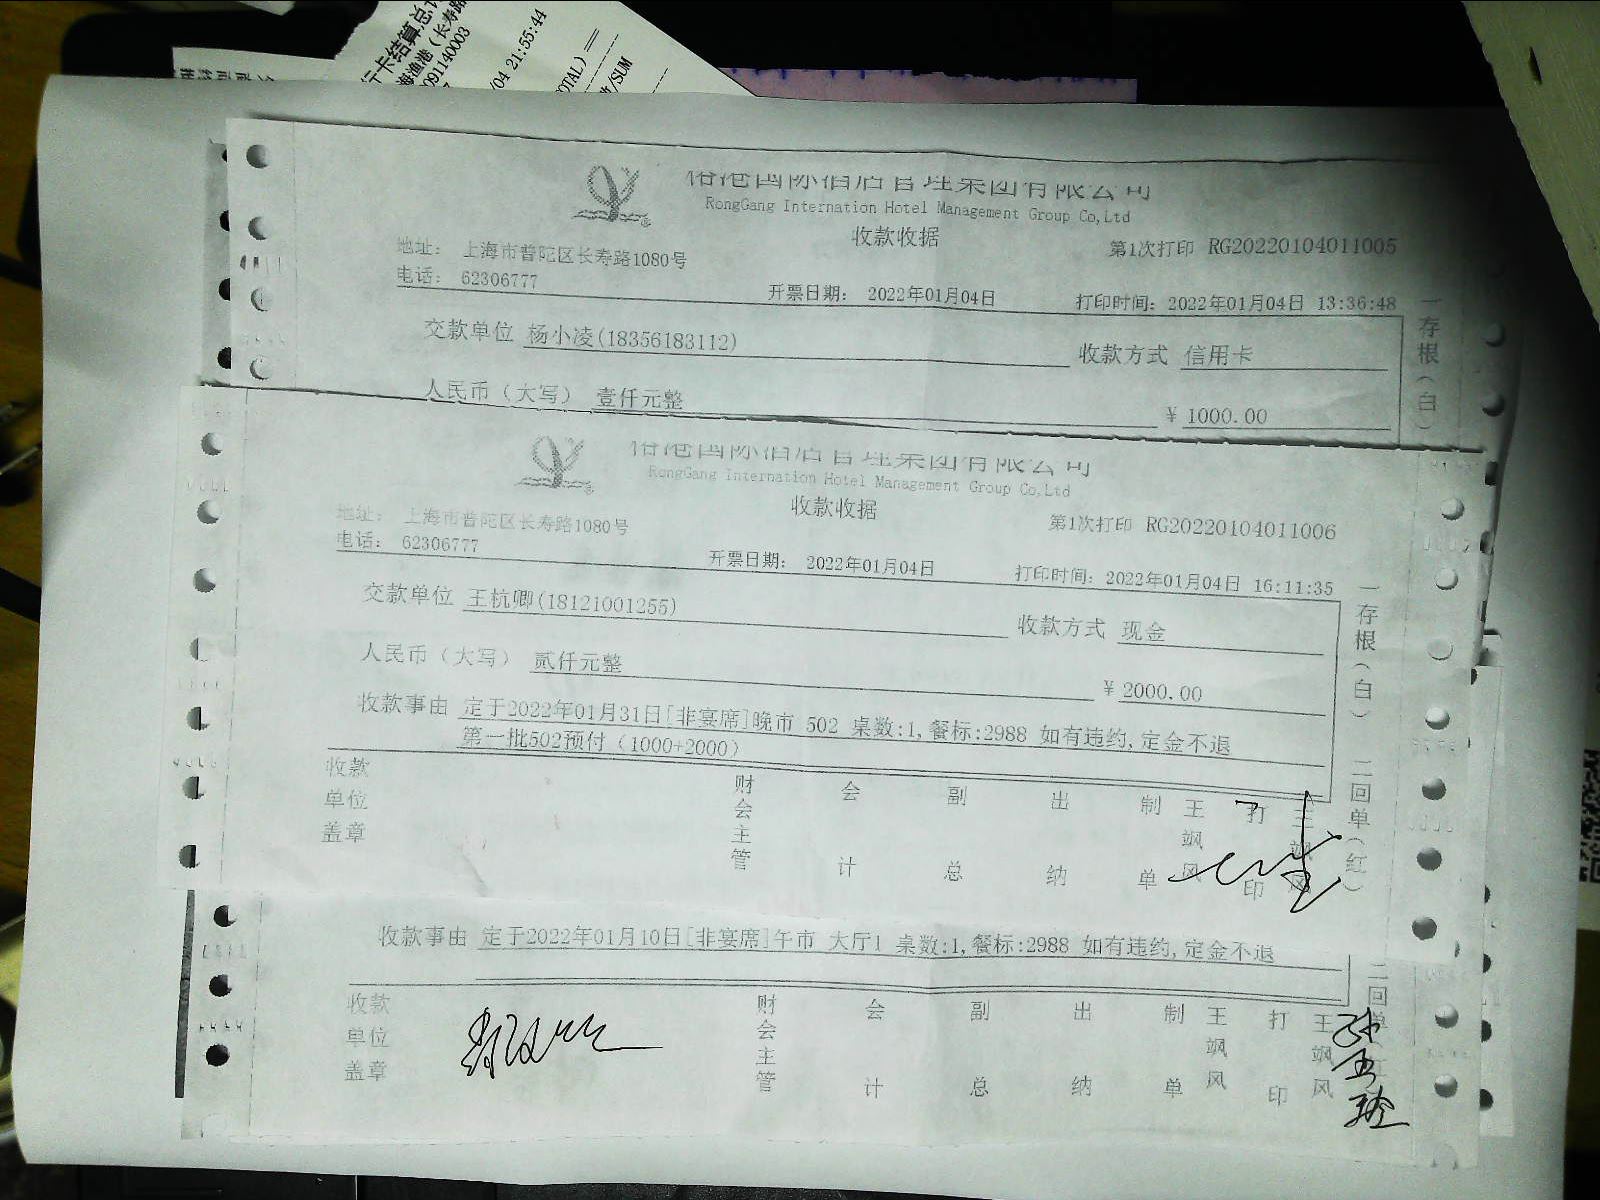 行卡结算总计
海渔港（长寿路
091140003
/04 21:55:44
OTAL)
/SUM
RongGang Internation Hotel Management Group Co,Ltd
收款收据
第1次打印 RG20220104011005
地址： 上海市普陀区长寿路1080号
电话： 62306777
开票日期： 2022年01月04日
打印时间：2022年01月04日 13:36:48
交款单位 杨小凌(18356183112)
收款方式 信用卡
人民币（大写） 壹仟元整
¥ 1000.00
一存根（白）
国际酒店管理集团有限公司
RongGang Internation Hotel Management Group Co,Ltd
收款收据
第1次打印 RG20220104011006
地址： 上海市普陀区长寿路1080号
电话： 62306777
开票日期： 2022年01月04日
打印时间：2022年01月04日 16:11:35
交款单位 王杭卿(18121001255)
收款方式 现金
人民币（大写） 贰仟元整
¥ 2000.00
收款事由 定于2022年01月31日[非宴席]晚市 502 桌数:1,餐标:2988 如有违约,定金不退
第一批502预付（1000+2000）
收款单位盖章
财会主管
会计
副总
出纳
制单
王飒风
打印
王飒风
一存根（白）
二回单（红）
收款事由 定于2022年01月10日[非宴席]午市 大厅1 桌数:1,餐标:2988 如有违约,定金不退
收款单位盖章
财会主管
会计
副总
出纳
制单
王飒风
打印
王飒风
二回单